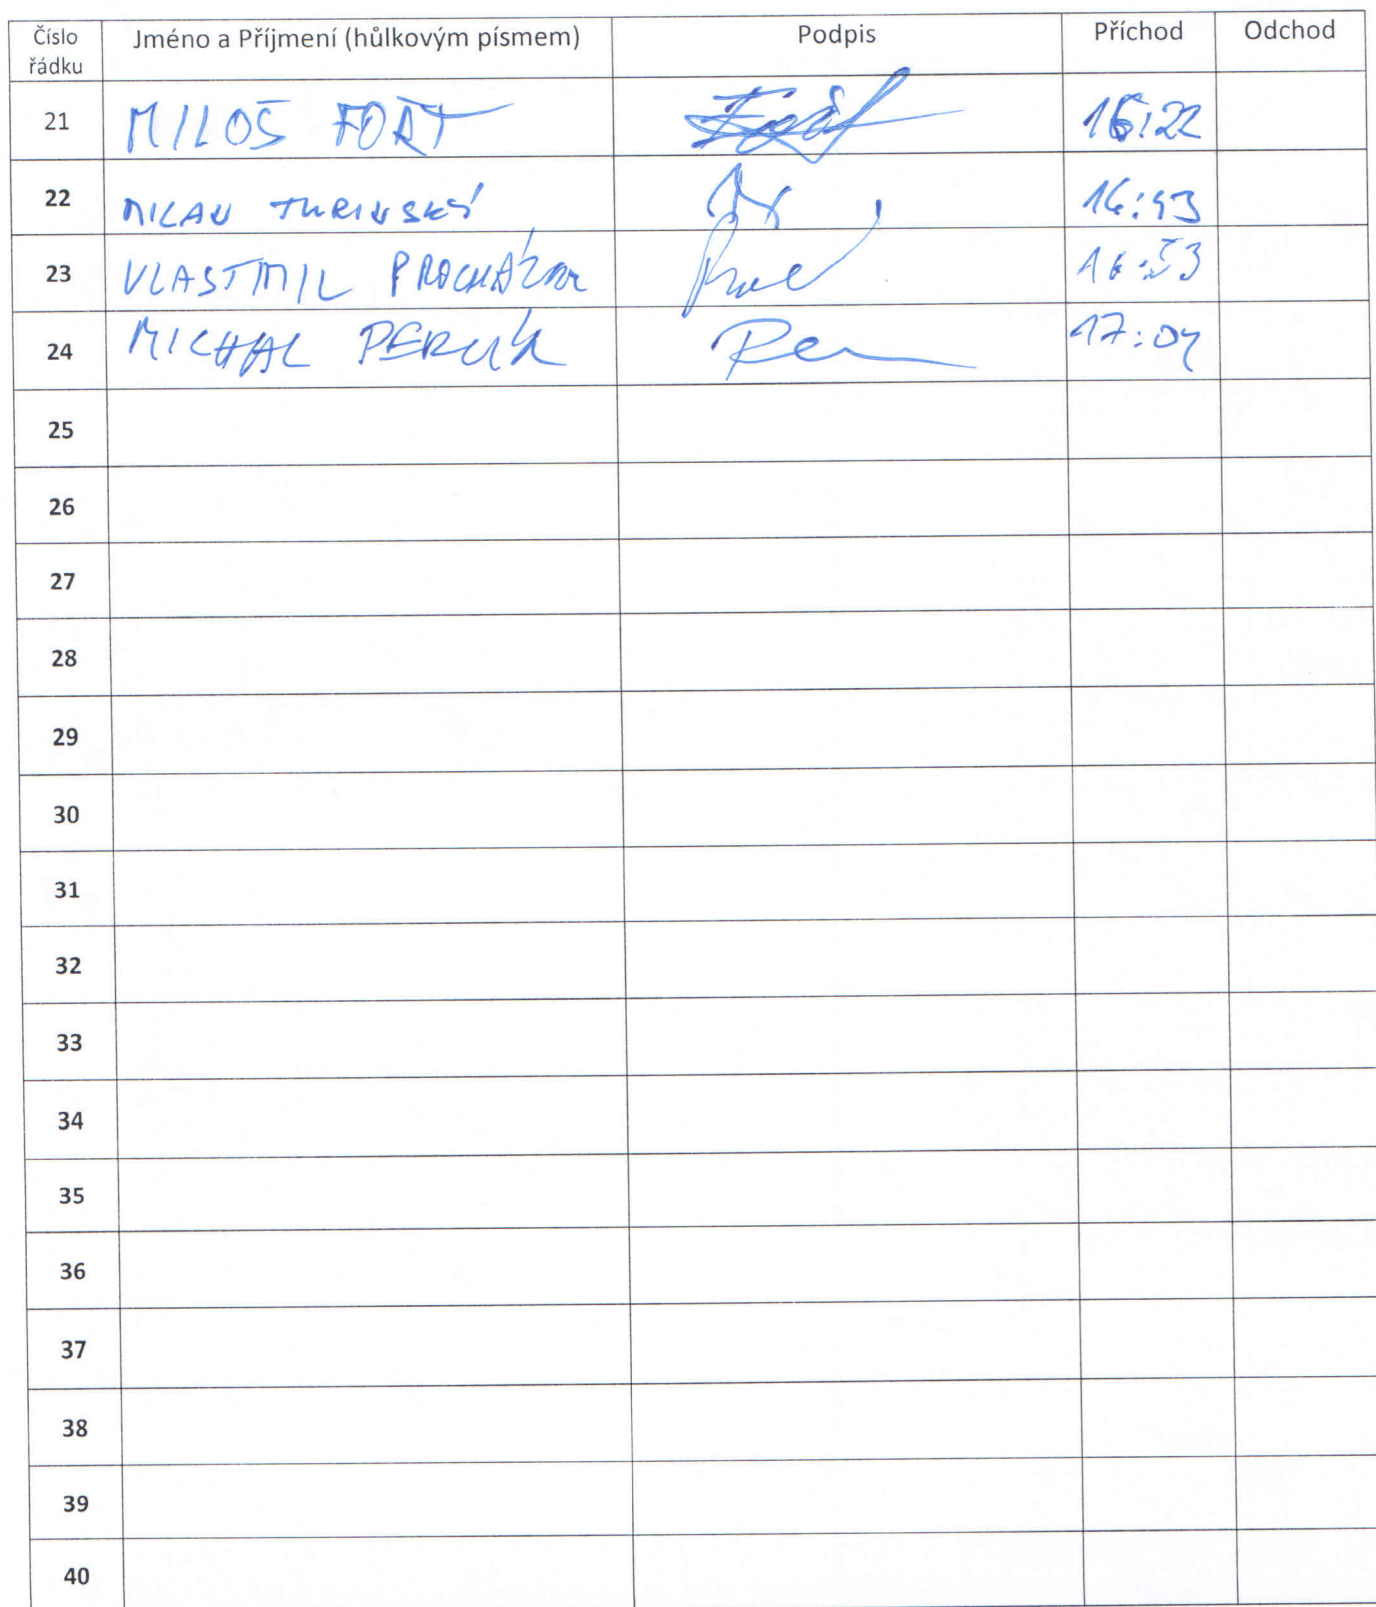 Číslo řádku Jméno a Příjmení (hůlkovým písmem) Podpis Příchod Odchod
21 MILOŠ FOŘT 16:22
22 MILAN TURINSKÝ 16:43
23 VLASTMIL PROCHÁZKA 16:53
24 MICHAL 17:04
25
26
27
28
29
30
31
32
33
34
35
36
37
38
39
40